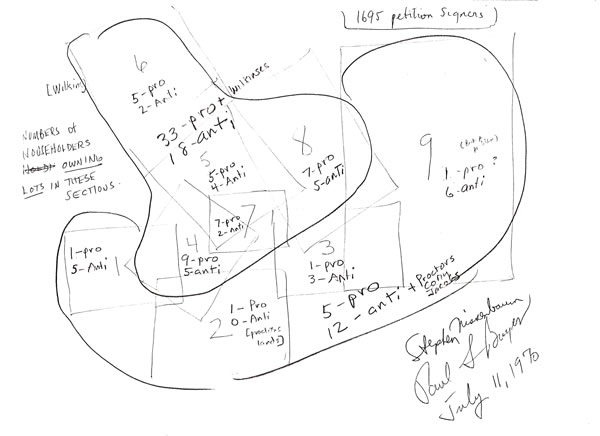 1695 petition Signers
6
5-pro
2-Anti
[Wilkins]
33-pro+ Wilkinses
18-anti
NUMBERS of
HOUSEHOLDERS
OWNING
LOTS IN THESE
SECTIONS.
5
5-pro
4-Anti
8
7-pro
5-anti
9
1-pro ?
6-anti
7-pro
2-Anti
7
4
9-pro
5-anti
1-pro
5-Anti
1
3
1-pro
3-Anti
5-pro
12-anti + Proctors
Corey
Jacobs
2
1-Pro
0-Anti
[proctors
lands]
Stephen Nissenbaum
Paul S Boyer
July 11, 1970